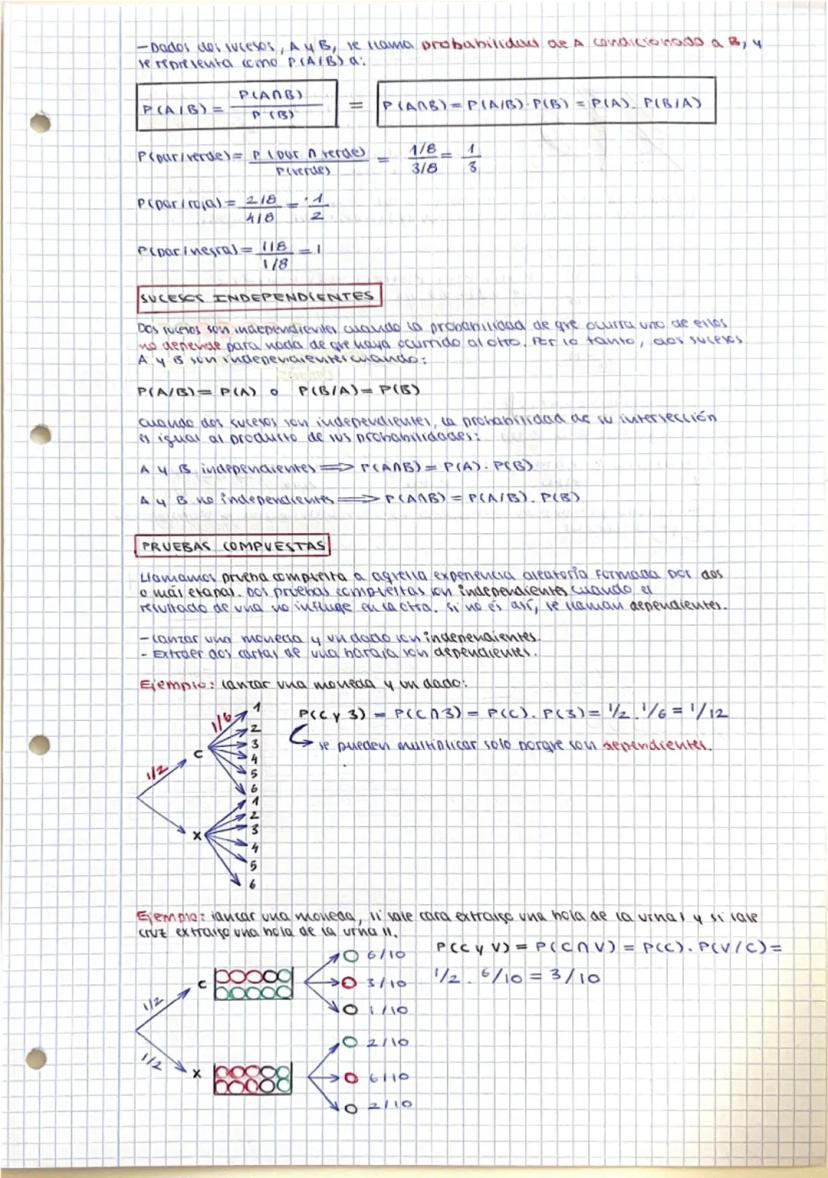 -Dados dos sucesos, A y B, se llama probabilidad de A condicionada a B, y
se representa como P(A/B) a:
P(A/B) = P(A∩B) / P(B) = P(A∩B) = P(A/B) · P(B) = P(A) · P(B/A)
P(par/verde) = P(par ∩ verde) / P(verde) = 1/8 / 3/8 = 1/3
P(par/roja) = 2/8 / 4/8 = 1/2
P(par/negra) = 1/8 / 1/8 = 1
SUCESOS INDEPENDIENTES
Dos sucesos son independientes cuando la probabilidad de que ocurra uno de ellos
no depende para nada de que haya ocurrido el otro. Por lo tanto, dos sucesos
A y B son independientes cuando:
P(A/B) = P(A) o P(B/A) = P(B)
Cuando dos sucesos son independientes, la probabilidad de su intersección
es igual al producto de sus probabilidades:
A y B independientes ⟹ P(A∩B) = P(A) · P(B)
A y B no independientes ⟹ P(A∩B) = P(A/B) · P(B)
PRUEBAS COMPUESTAS
Llamamos prueba compuesta a aquella experiencia aleatoria formada por dos
o más etapas. Dos pruebas compuestas son independientes cuando el
resultado de una no influye en la otra. Si no es así, se llaman dependientes.
-Lanzar una moneda y un dado son independientes.
- Extraer dos cartas de una baraja son dependientes.
Ejemplo: lanzar una moneda y un dado:
P(C y 3) = P(C∩3) = P(C) · P(3) = 1/2 · 1/6 = 1/12
se pueden multiplicar solo porque son dependientes.
1/2
C
1/6
1
2
3
4
5
6
X
1
2
3
4
5
6
Ejemplo: lanzar una moneda, si sale cara extraigo una bola de la urna I y si sale
cruz extraigo una bola de la urna II.
P(C y V) = P(C∩V) = P(C) · P(V/C) =
1/2 · 6/10 = 3/10
1/2
C
6/10
3/10
1/10
1/2
X
2/10
6/10
2/10